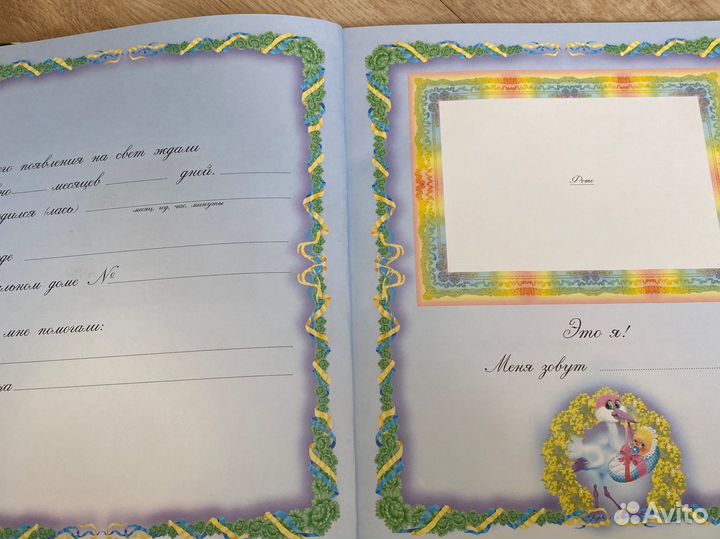 его появления на свет ждали
но месяцев дней.
дился (лась)
месяц, год, час, минуты
де
льном доме №
мне помогали:
ка
Фото
Это я!
Меня зовут
Avito